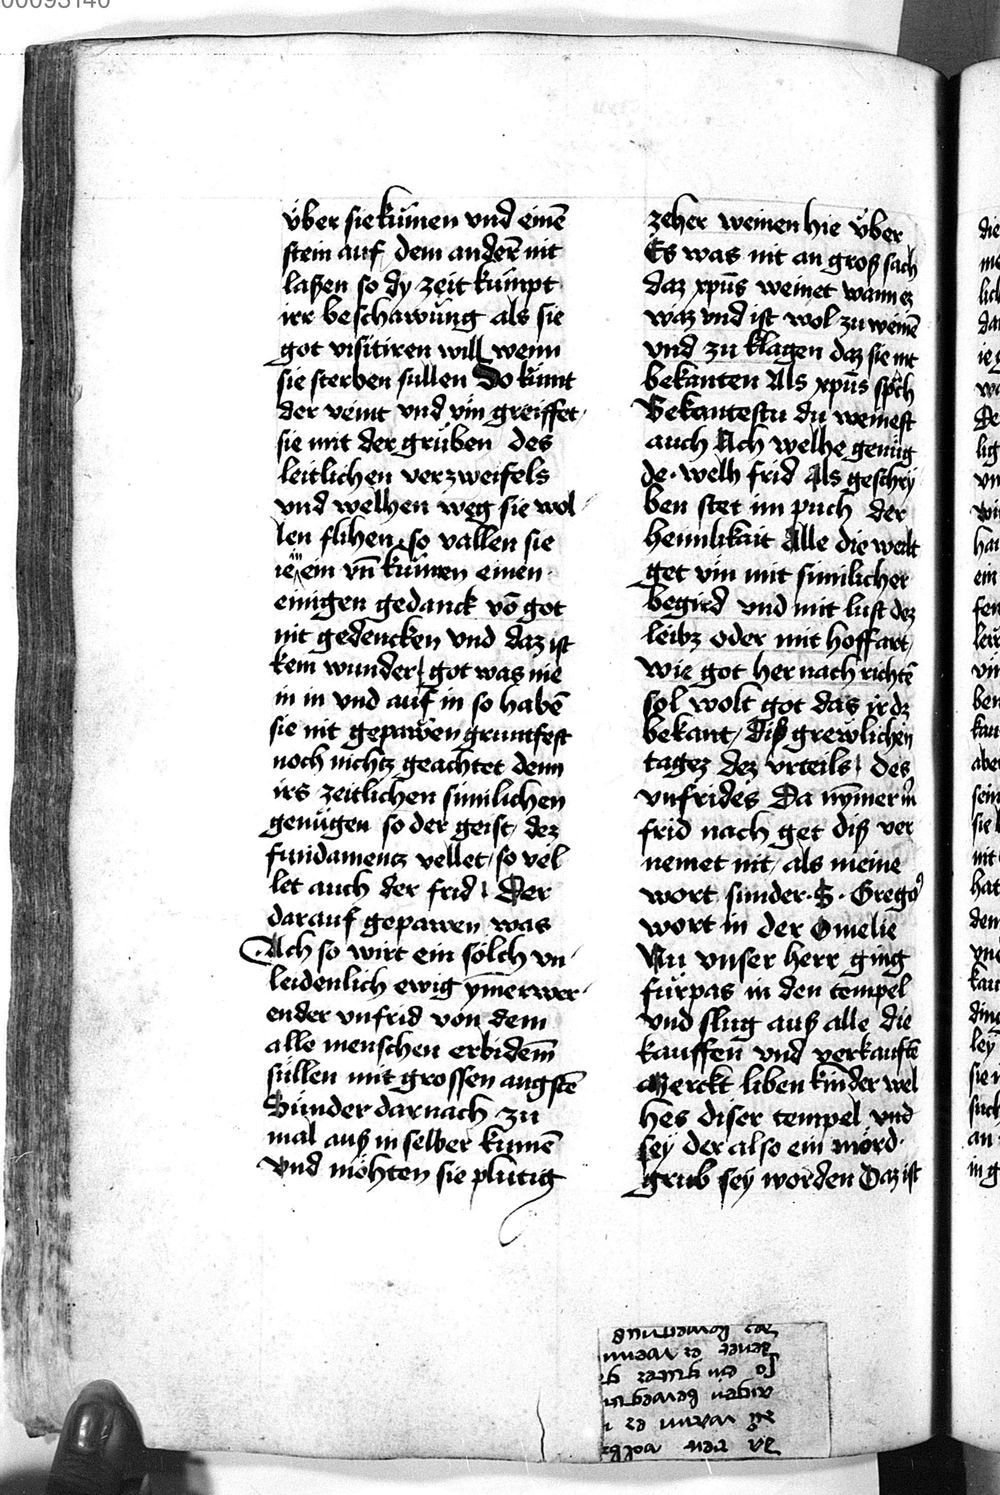 über sie kumen vnd einē
stein auf dem anderē nit
laßen so dy zeit kumpt
irr beschawung als sie
got visitiren will wenn
sie sterben sullen Do kumt
der veint vnd vin greiffet
sie mit der gruben des
leitlichen verzweifels
vnd welhen weg sie wol
len flihen so vallen sie
ein vn̄ kumen einen
einigen gedanck vō got
nit gedencken vnd daz ist
kein wunder got was nie
in in vnd auf in so habē
sie nit gepawen gruntfest
noch nichtz geachtet denn
irs zeitlichen sinnlichen
genügen so der geist dez
fundamentz vellet so vel
let auch der frid Der
darauf gepawen was
Ach so wirt ein sölch vn
leidenlich ewig ymerwer
ender vnfrid von dem
alle menschen erbidem̄
süllen mit grossen angstē
Sunder darnach zu
mal auß in selber kumē
vnd möhten sie plutig
zeher weinen hie vber
Es was nit an groß sach
daz xpūs weinet wann ez
waz vnd ist wol zu weinē
vnd zu klagen daz sie nit
bekanten Als xpūs spch
Bekantestu du weinest
auch Ach welhe genüg
de welh frid Als geschri
ben stet im puch der
heimlikait Alle die welt
get vin mit sinnlicher
begird vnd mit lust dez
leibz oder mit hoffart
wie got her nach richtē
sol wolt got das irdz
bekant Diß grewlichen
tagez dez vrteils des
vnfrides Da nymer in
frid nach get diß ver
nemet nit als meine
wort sunder S Grego
wort in der Omelie
Nu vnser herr ging
fürpas in den tempel
vnd slug auß alle die
kauffen vnd verkaufte
Merckt liben kinder wel
hes diser tempel vnd
sey der also ein mord
grub sey worden Daz ist